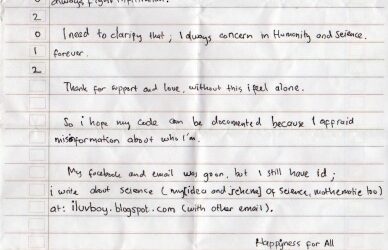 0 always fight
2
0 I need to clarify that ; I always concern in Humanity and science.
1 forever.
2
Thank for support and love, without this i feel alone.
So i hope my code can be documented because I appraid
misinformation about who I'm.
My facebook and email was goon, but I still have id ;
i write about science ( my idea and scheme) of science, mathematic too)
at : iluvboy.blogspot.com (with other email).
Happiness for All